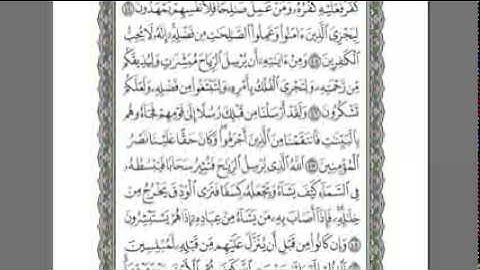 كَفَرَ فَعَلَيْهِ كُفْرُهُۥ وَمَنْ عَمِلَ صَٰلِحًا فَلِأَنفُسِهِمْ يَمْهَدُونَ ٤٤
لِيَجْزِىَ ٱلَّذِينَ ءَامَنُوا۟ وَعَمِلُوا۟ ٱلصَّٰلِحَٰتِ مِن فَضْلِهِۦٓ إِنَّهُۥ لَا يُحِبُّ
ٱلْكَٰفِرِينَ ٤٥ وَمِنْ ءَايَٰتِهِۦٓ أَن يُرْسِلَ ٱلرِّيَاحَ مُبَشِّرَٰتٍ وَلِيُذِيقَكُم
مِّن رَّحْمَتِهِۦ وَلِتَجْرِىَ ٱلْفُلْكُ بِأَمْرِهِۦ وَلِتَبْتَغُوا۟ مِن فَضْلِهِۦ وَلَعَلَّكُمْ
تَشْكُرُونَ ٤٦ وَلَقَدْ أَرْسَلْنَا مِن قَبْلِكَ رُسُلًا إِلَىٰ قَوْمِهِمْ فَجَآءُوهُم
بِٱلْبَيِّنَٰتِ فَٱنتَقَمْنَا مِنَ ٱلَّذِينَ أَجْرَمُوا۟ وَكَانَ حَقًّا عَلَيْنَا نَصْرُ
ٱلْمُؤْمِنِينَ ٤٧ ٱللَّهُ ٱلَّذِى يُرْسِلُ ٱلرِّيَٰحَ فَتُثِيرُ سَحَابًا فَيَبْسُطُهُۥ
فِى ٱلسَّمَآءِ كَيْفَ يَشَآءُ وَيَجْعَلُهُۥ كِسَفًا فَتَرَى ٱلْوَدْقَ يَخْرُجُ مِنْ
خِلَٰلِهِۦ فَإِذَآ أَصَابَ بِهِۦ مَن يَشَآءُ مِنْ عِبَادِهِۦٓ إِذَا هُمْ يَسْتَبْشِرُونَ
٤٨ وَإِن كَانُوا۟ مِن قَبْلِ أَن يُنَزَّلَ عَلَيْهِم مِّن قَبْلِهِۦ لَمُبْلِسِينَ